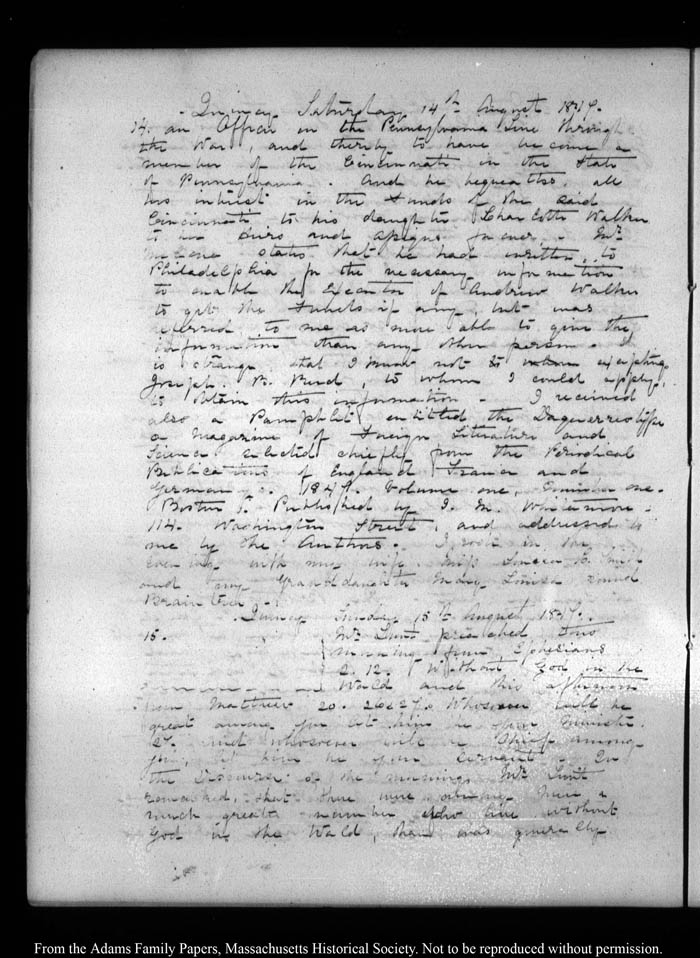 Quincy Saturday 14th August 1847.
14. an Officer in the Pennsylvania Line through
the War, and thereby to have become a
member of the Cincinnati in the State
of Pennsylvania. And he bequeaths, all
his interest in the Funds of the said
Cincinnati to his daughter Charlotte Walker
to her heirs and assigns forever. Mr
states that he had written to
Philadelphia for the necessary information
to enable the Executor of Andrew Walker
to get the Funds if any, but was
referred to me as more able to give the
information than any other person. It
is strange that I know not to whom excepting
Joseph B. , to whom I could apply,
to obtain this information. I received
also a Pamphlet entitled the Daguerreotype
a magazine of Foreign Literature and
Science selected chiefly from the Periodical
Publications of England France and
Germany. 1847. Volume one, Number one.
Boston. Published by J. M. Whittemore.
114. Washington Street, and addressed to
me by the Authors. I rode in the
evening with my wife. Miss Louisa C. Smith
and my Granddaughter Mary Louisa round
Braintree.
Quincy Sunday 15th August 1847.
15. Mr Lunt preached this
morning from Ephesians
2. 12. Without God in the
World and this afternoon
from Matthew 20. 26 27. Whosoever will be
great among you let him be your Minister.
27. And whosoever will be Chief among
you, let him be your servant. In
the discourse of the morning, Mr Lunt
remarked, that there were among men a
much greater number who live without
God in the World, than was generally
From the Adams Family Papers, Massachusetts Historical Society. Not to be reproduced without permission.